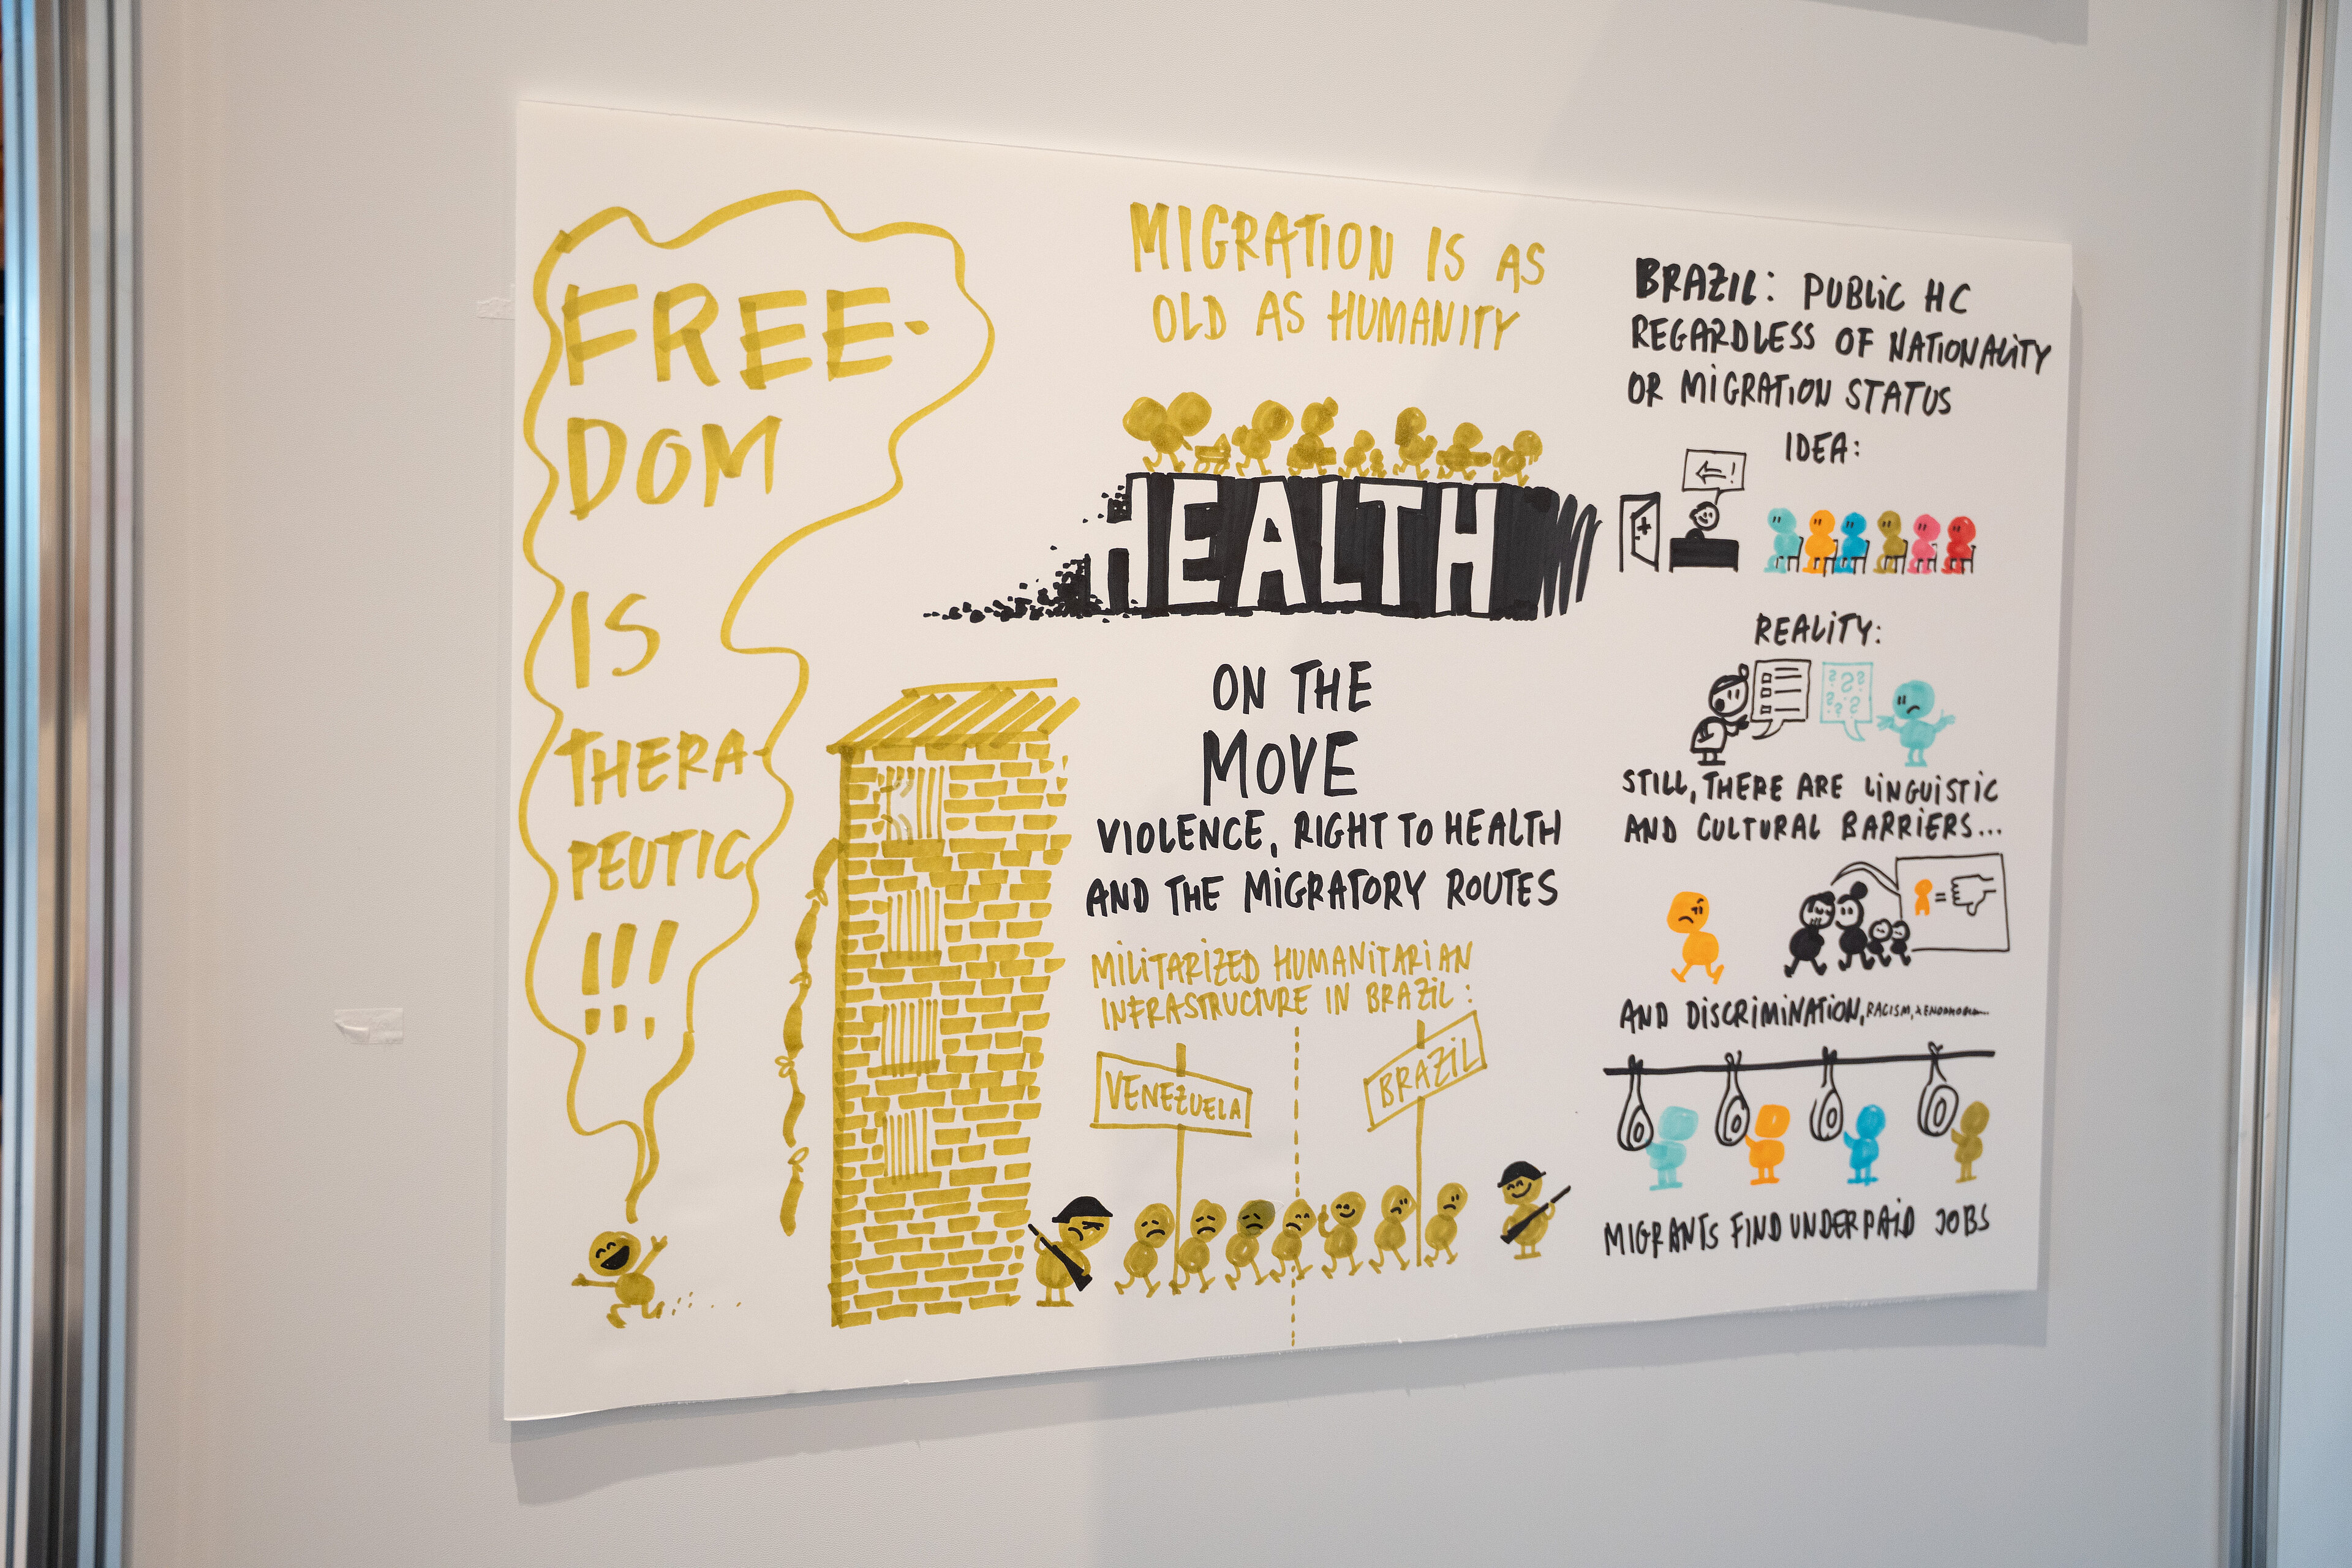 FREE-
DOM
IS
THERA-
PEUTIC
!!!
MIGRATION IS AS
OLD AS HUMANITY
HEALTH
ON THE
MOVE
VIOLENCE, RIGHT TO HEALTH
AND THE MIGRATORY ROUTES
MILITARIZED HUMANITARIAN
INFRASTRUCTURE IN BRAZIL:
VENEZUELA
BRAZIL
BRAZIL: PUBLIC HC
REGARDLESS OF NATIONALITY
OR MIGRATION STATUS
IDEA:
!
REALITY:
STILL, THERE ARE LINGUISTIC
AND CULTURAL BARRIERS...
=
AND DISCRIMINATION, RACISM,
MIGRANTS FIND UNDERPAID JOBS